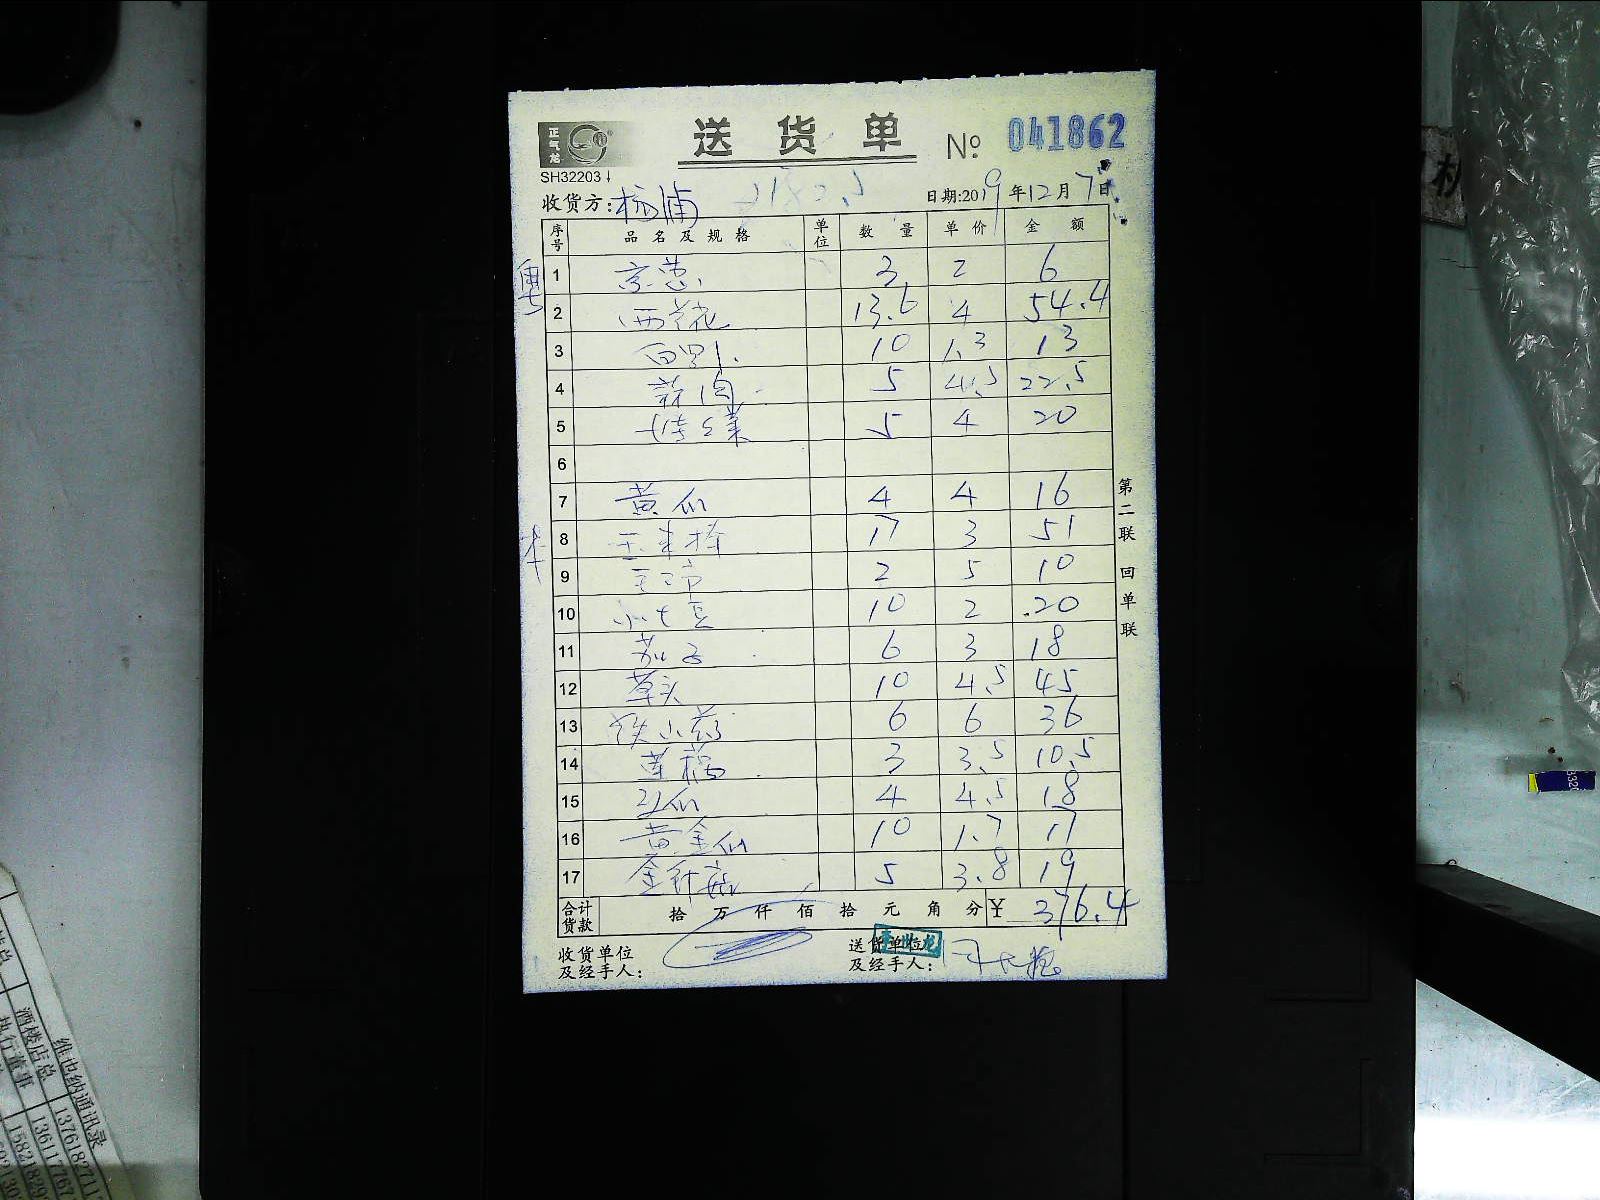 正气龙
送货单 № 041862
SH32203
收货方: 杨浦 日期:2019年12月7日
序号 品名及规格 单位 数量 单价 金额
1 京葱 3 2 6
2 西兰花 13.6 4 54.4
3 白罗卜 10 1.3 13
4 5 4.5 22.5
5 5 4 20
6
7 黄瓜 4 4 16
8 玉米棒 17 3 51
9 2 5 10
10 小土豆 10 2 20
11 茄子 6 3 18
12 草头 10 4.5 45
13 铁小药 6 6 36
14 莲藕 3 3.5 10.5
15 4 4.5 18
16 黄金瓜 10 1.7 17
17 金针菇 5 3.8 19
合计货款 拾 万 仟 佰 拾 元 角 分 ¥ 376.4
收货单位及经手人: 送货单位及经手人:
第二联 回单联
维也纳通讯录
酒楼店总
执行董事